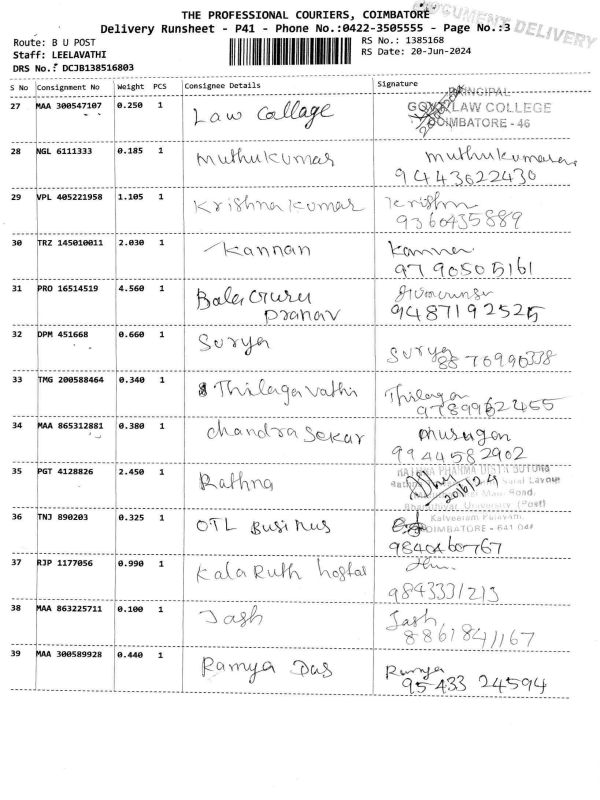 THE PROFESSIONAL COURIERS, COIMBATORE
DOCUMENT DELIVERY
Delivery Runsheet - P41 - Phone No.:0422-3505555 - Page No.:3
Route: B U POST
RS No.: 1385168
Staff: LEELAVATHI
RS Date: 20-Jun-2024
DRS No.: DCJB138516803
S No Consignment No Weight PCS Consignee Details Signature
PRINCIPAL
27 MAA 300547107 0.250 1 Law Collage GOVT LAW COLLEGE
COIMBATORE - 46
28 NGL 6111333 0.185 1 Muthukumar Muthukumaran
9443622430
29 VPL 405221958 1.105 1 Krishna Kumar Krishn
9360435889
30 TRZ 145010011 2.030 1 Kannan
97 90505161
31 PRO 16514519 4.560 1 Bala Guru
Pranav 9487192525
32 DPM 451668 0.660 1 Surya Surya
8876996338
33 TMG 200588464 0.340 1 Thilaga vathi Thilaga
9789962455
34 MAA 865312881 0.380 1 Chandra Sekar Murugan
9944582902
35 PGT 4128826 2.450 1 Rathna
20/6/24
36 TNJ 890203 0.325 1 OTL Businus COIMBATORE - 641 046
9840460767
37 RJP 1177056 0.990 1 Kala Ruth hostal
9843331213
38 MAA 863225711 0.100 1 Jash Jash
8861841167
39 MAA 300589928 0.440 1 Ramya Das Ramya
95433 24594